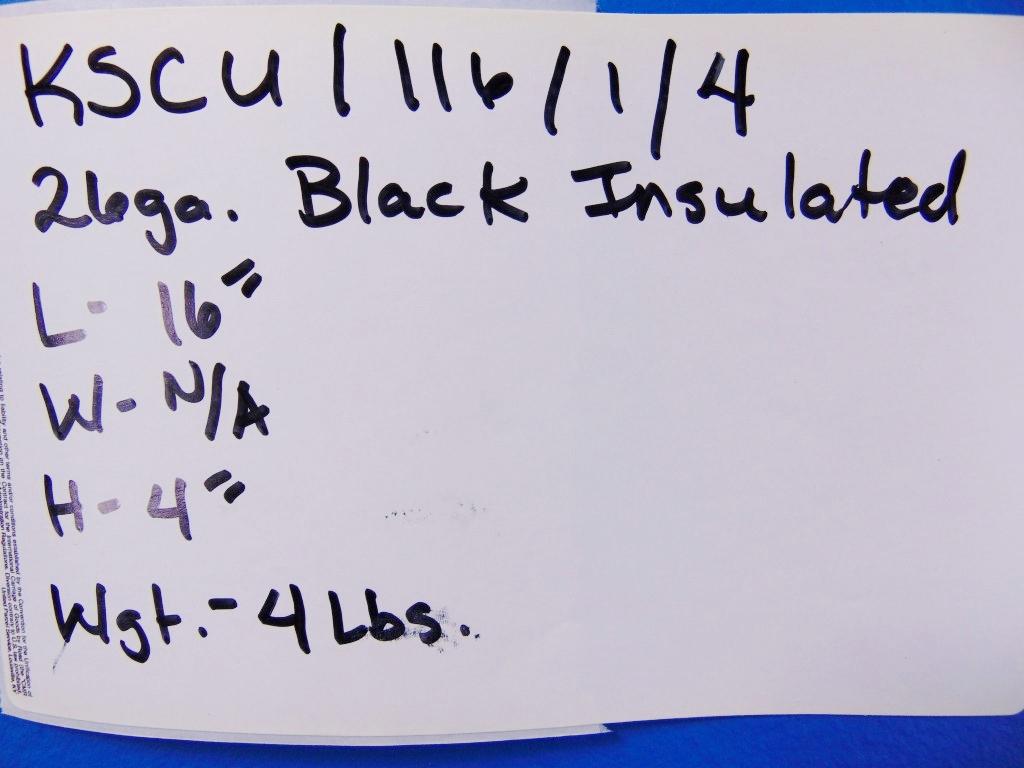 KSCU / 116 / 1 / 4
26ga. Black Insulated
L- 16"
W- N/A
H- 4"
Wgt.- 4 Lbs.